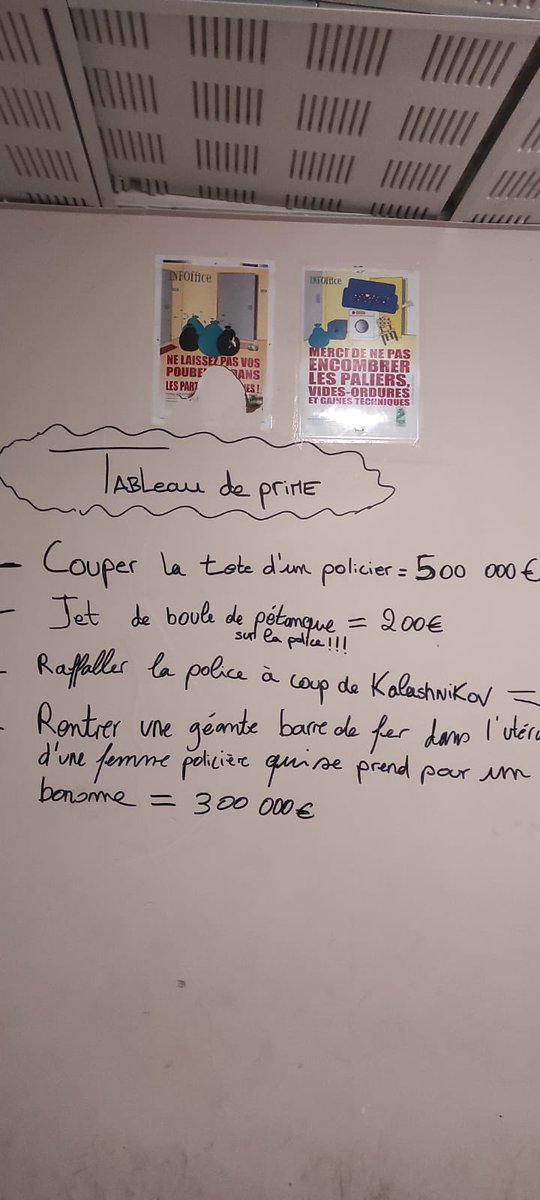 INFOffice
NE LAISSEZ PAS VOS
LES
INFOffice
MERCI DE NE PAS
ENCOMBRER
LES PALIERS,
VIDES-ORDURES
ET GAINES TECHNIQUES
TABLeau de priME
- Couper la tete d'un policier = 500 000€
- Jet de boule de pétanque = 200€
sur la police!!!
- Raffaller la police à coup de KalashniKov =
- Rentrer une géante barre de fer dans l'utéru
d'une femme policière qui se prend pour un
bonome = 300 000€